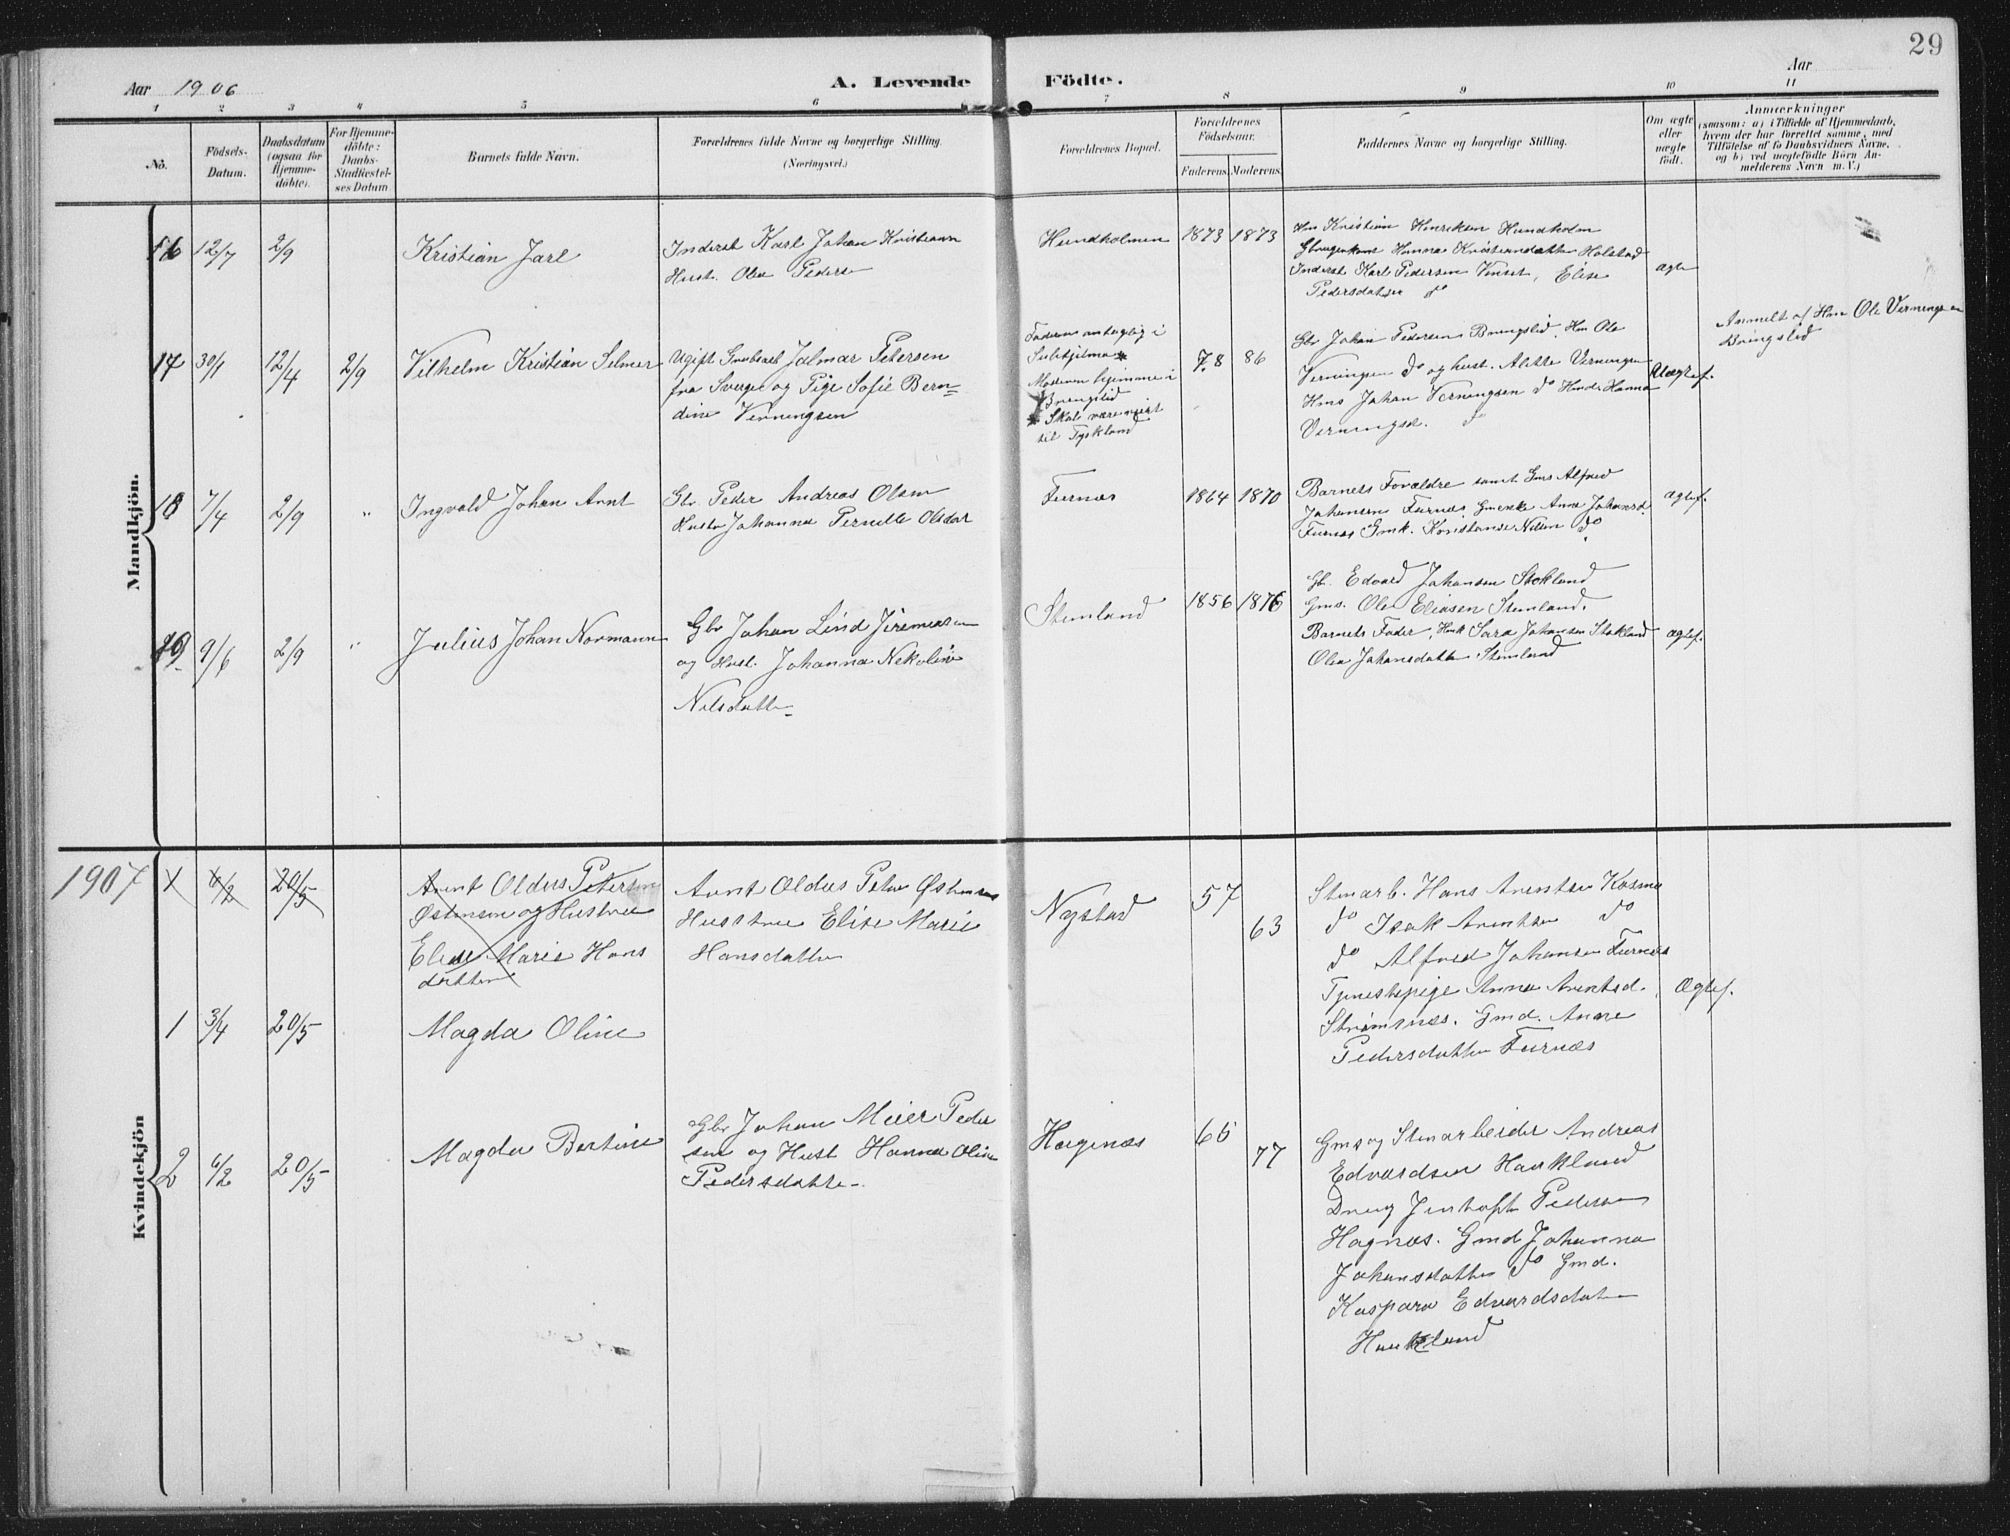 29
Aar 1906 A. Levende Födte. Aar
1 2 3 4 5 6 7 8 9 10 11
No.
Födsels-Datum.
Daabsdatum (ogsaa for Hjemme-döbte).
For Hjemme-döbte: Daabs-Stadfæstel-ses Datum
Barnets fulde Navn.
Forældrenes fulde Navne og borgerlige Stilling.
(Næringsvei.)
Forældrenes Bopæl.
Forældrenes Födselsaar.
Faderens. Moderens.
Faddernes Navne og borgerlige Stilling.
Om ægte eller uægte födt.
Anmærkninger
(saasom: a) i Tilfælde af Hjemmedaab,
hvem der har forrettet samme, med
Tilföielse af to Daabsvidners Navne,
og b) ved uægtefödte Börn An-
melderens Navn m. V.)
Mandkjön.
16 12/7 2/9
Kristian Jarl
Inderst Karl Johan Kristiansen
Hust. Olea Peders
Hundholmen 1873 1873
Hm Kristian Henriksen Hundholm
Gbrugerkone Hanna Kristensdatter Holstad
Inderst Karl Pedersen Vinset, Elise
Pedersdatter do
ægte
17 30/1 12/4 2/9
Vilhelm Kristian Selmer
Ugift Grubearb Jalmar Petersen
fra Sverge og Pige Sofie Bern-
dine Verningsen
Faderens antagelig i
Sulitjelma *
Moderen hjemme i
Bringslid
* Skal være reist
til Tyskland
78 86
Gbr Johan Pedersen Bringslid. Hm Ole
Verningsen do og hust. Alette Verningsen
Hms Johan Verningsen do Hmd. Hanna
Verningsd. do
Uægtef.
Anmelt af Hm Ole Verningsen
Bringslid
18 7/4 2/9 "
Ingvald Johan Arnt
Gbr Peder Andreas Olsen
Hustr Johanna Pernille Olsdat
Furnæs 1864 1870
Barnets Forældre samt Gms Alfred
Johansen Furnæs Gmenke Ane Johansd.
Furnæs Gmk. Konstanse Nilsen do
ægtef.
19 9/6 2/9 "
Julius Johan Normann
Gbr Johan Lind Jeremiassen
og Hust. Johanna Nekoline
Nilsdatter
Stemland 1856 1876
Gbr. Edvard Johansen Stokland
Gms. Ole Eliasen Stemland.
Barnets Fader, Hmk Sara Johansen Stokland
Olea Johansdatter Stemland
ægtef.
1907
Kvindekjön
X 6/2 20/5
Arent Oldus Petersen
Østensen og Hustru
Elise Marie Hans
datter
Arnt Oldus Peter Østensen
Hustru Elise Marie
Hansdatter
Nystad 57 63
Stenarb. Hans Arentsen Kosmo
do Isak Arentsen do
do Alfred Johansen Furnæs
Tjenestepige Anna Arentsd.
Strømsnæs. Gmd. Anne
Pedersdatter Furnæs
Ægtef.
1 3/4 20/5
Magda Oline
2 6/2 20/5
Magda Bertine
Gbr Johan Meier Peder
sen og Hust Hanna Oline
Pedersdatter
Hagenæs 66 77
Gms og Stenarbeider Andreas
Edvardsen Haukland
Dreng Jentoft Pedersen
Hagnæs. Gmd Johanna
Johansdatter do Gmd.
Kaspara Edvardsdatter
Haukland